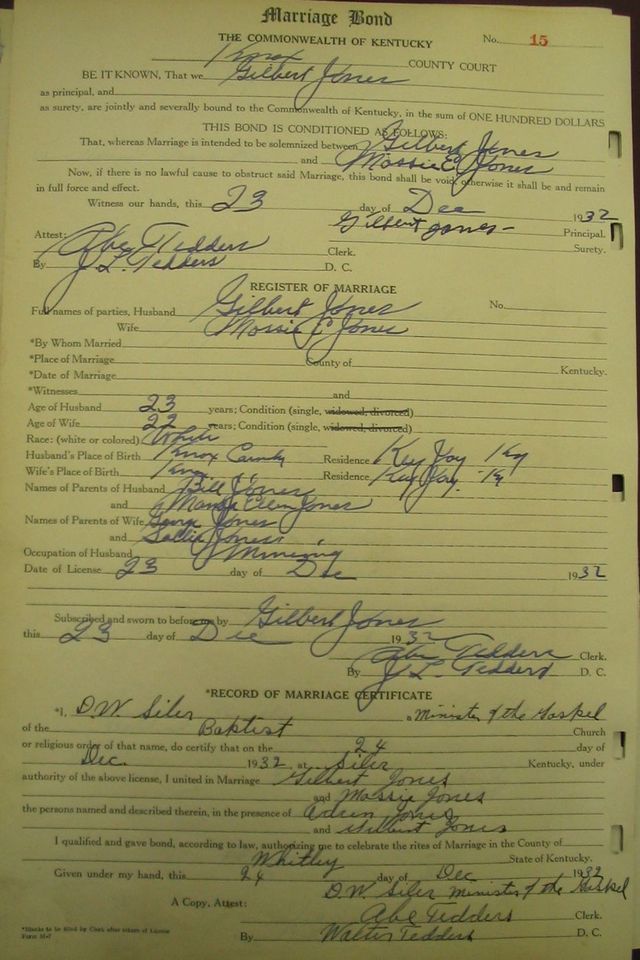 Marriage Bond
THE COMMONWEALTH OF KENTUCKY No. 15
Knox COUNTY COURT
BE IT KNOWN, That we Gilbert Jones
as principal, and
as surety, are jointly and severally bound to the Commonwealth of Kentucky, in the sum of ONE HUNDRED DOLLARS
THIS BOND IS CONDITIONED AS FOLLOWS:
That, whereas Marriage is intended to be solemnized between Gilbert Jones
and Mossie E Jones
Now, if there is no lawful cause to obstruct said Marriage, this bond shall be void, otherwise it shall be and remain
in full force and effect.
Witness our hands, this 23 day of Dec 1932
Gilbert Jones Principal.
Attest: Surety.
Abe Tedders Clerk.
By J L. Tedders D. C.
REGISTER OF MARRIAGE
Full names of parties, Husband Gilbert Jones No.
Wife Mossie E Jones
*By Whom Married
*Place of Marriage County of Kentucky.
*Date of Marriage
*Witnesses and
Age of Husband 23 years; Condition (single, widowed, divorced)
Age of Wife 22 years; Condition (single, widowed, divorced)
Race: (white or colored) White
Husband's Place of Birth Knox County Residence Kay Jay Ky
Wife's Place of Birth Knox " Residence Kay Jay. Ky
Names of Parents of Husband Bill Jones
and Ellen Jones
Names of Parents of Wife George Jones
and Sallie Jones
Occupation of Husband Mining
Date of License 23 day of Dec 1932
Subscribed and sworn to before me by Gilbert Jones
this 23 day of Dec 1932
Abe Tedders Clerk.
By J L. Tedders D. C.
*RECORD OF MARRIAGE CERTIFICATE
*I, D.W. Siler a Minister of the Gospel
of the Baptist Church
or religious order of that name, do certify that on the 24 day of
Dec. 1932, at Siler Kentucky, under
authority of the above license, I united in Marriage Gilbert Jones
and Mossie Jones
the persons named and described therein, in the presence of Jones
and Jones
I qualified and gave bond, according to law, authorizing me to celebrate the rites of Marriage in the County of
Whitley State of Kentucky.
Given under my hand, this 24 day of Dec 1932
D.W. Siler Minister of the Gospel
A Copy, Attest: Abe Tedders Clerk.
By Walter Tedders D. C.
*Blanks to be filled by Clerk after return of License